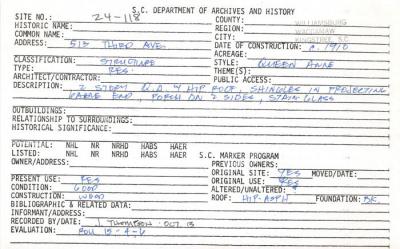 S.C. DEPARTMENT OF ARCHIVES AND HISTORY
SITE NO.: 24-118 COUNTY: WILLIAMSBURG
HISTORIC NAME: REGION: WACCAMAW
COMMON NAME: CITY: KINGSTREE, S.C.
ADDRESS: 513 THIRD AVE. DATE OF CONSTRUCTION: C. 1910
ACREAGE:
CLASSIFICATION: STRUCTURE STYLE: QUEEN ANNE
TYPE: RES. THEME(S):
ARCHITECT/CONTRACTOR: PUBLIC ACCESS:
DESCRIPTION: 2 STORY Q.A. HIP ROOF, SHINGLES IN PROJECTING
GABLE END, PORCH ON 2 SIDES, STAIN GLASS
OUTBUILDINGS:
RELATIONSHIP TO SURROUNDINGS:
HISTORICAL SIGNIFICANCE:
POTENTIAL: NHL NR NRHD HABS HAER
LISTED: NHL NR NRHD HABS HAER S.C. MARKER PROGRAM
OWNER/ADDRESS: PREVIOUS OWNERS:
ORIGINAL SITE: YES MOVED/DATE:
PRESENT USE: RES ORIGINAL USE: RES
CONDITION: GOOD ALTERED/UNALTERED: ?
CONSTRUCTION: WOOD ROOF: HIP-ASPH FOUNDATION: BK.
BIBLIOGRAPHIC & RELATED DATA:
INFORMANT/ADDRESS:
RECORDED BY/DATE: J. THOMPSON - OCT.
EVALUATION: ROLL 15-4-6